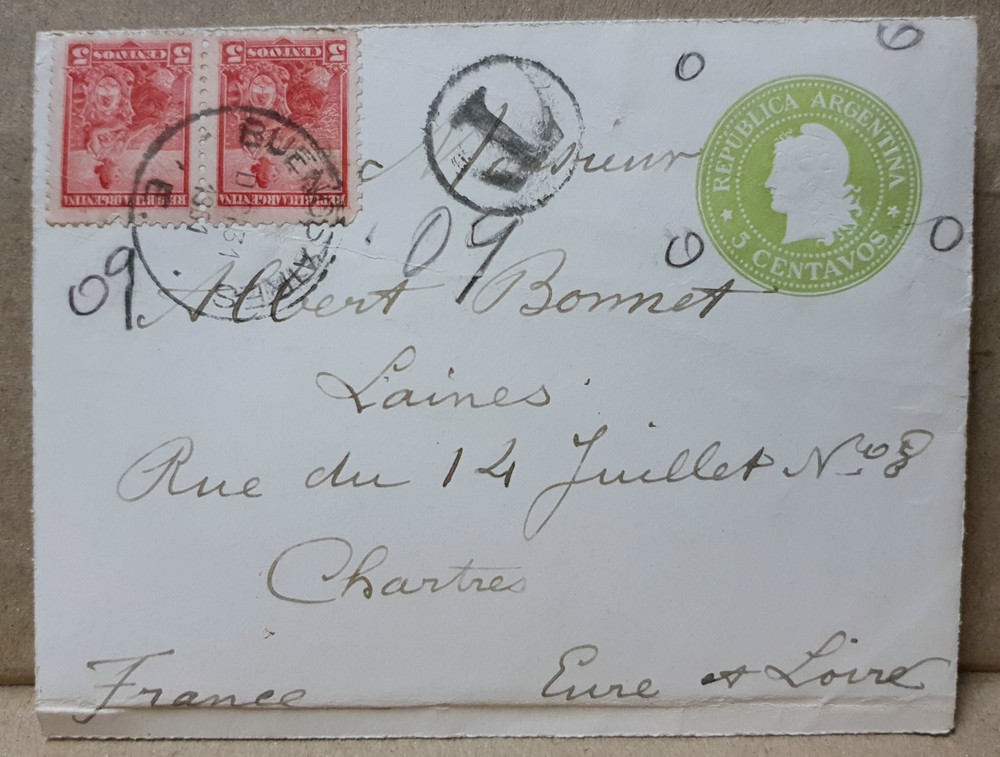 5 CENTAVOS 5
REPUBLICA ARGENTINA
5 CENTAVOS 5
REPUBLICA ARGENTINA
BUENOS AIRES
T
REPUBLICA ARGENTINA
5 CENTAVOS
Monsieur
09
09
Albert Bonnet
Laines
Rue du 14 Juillet No
Chartres
France Eure & Loire